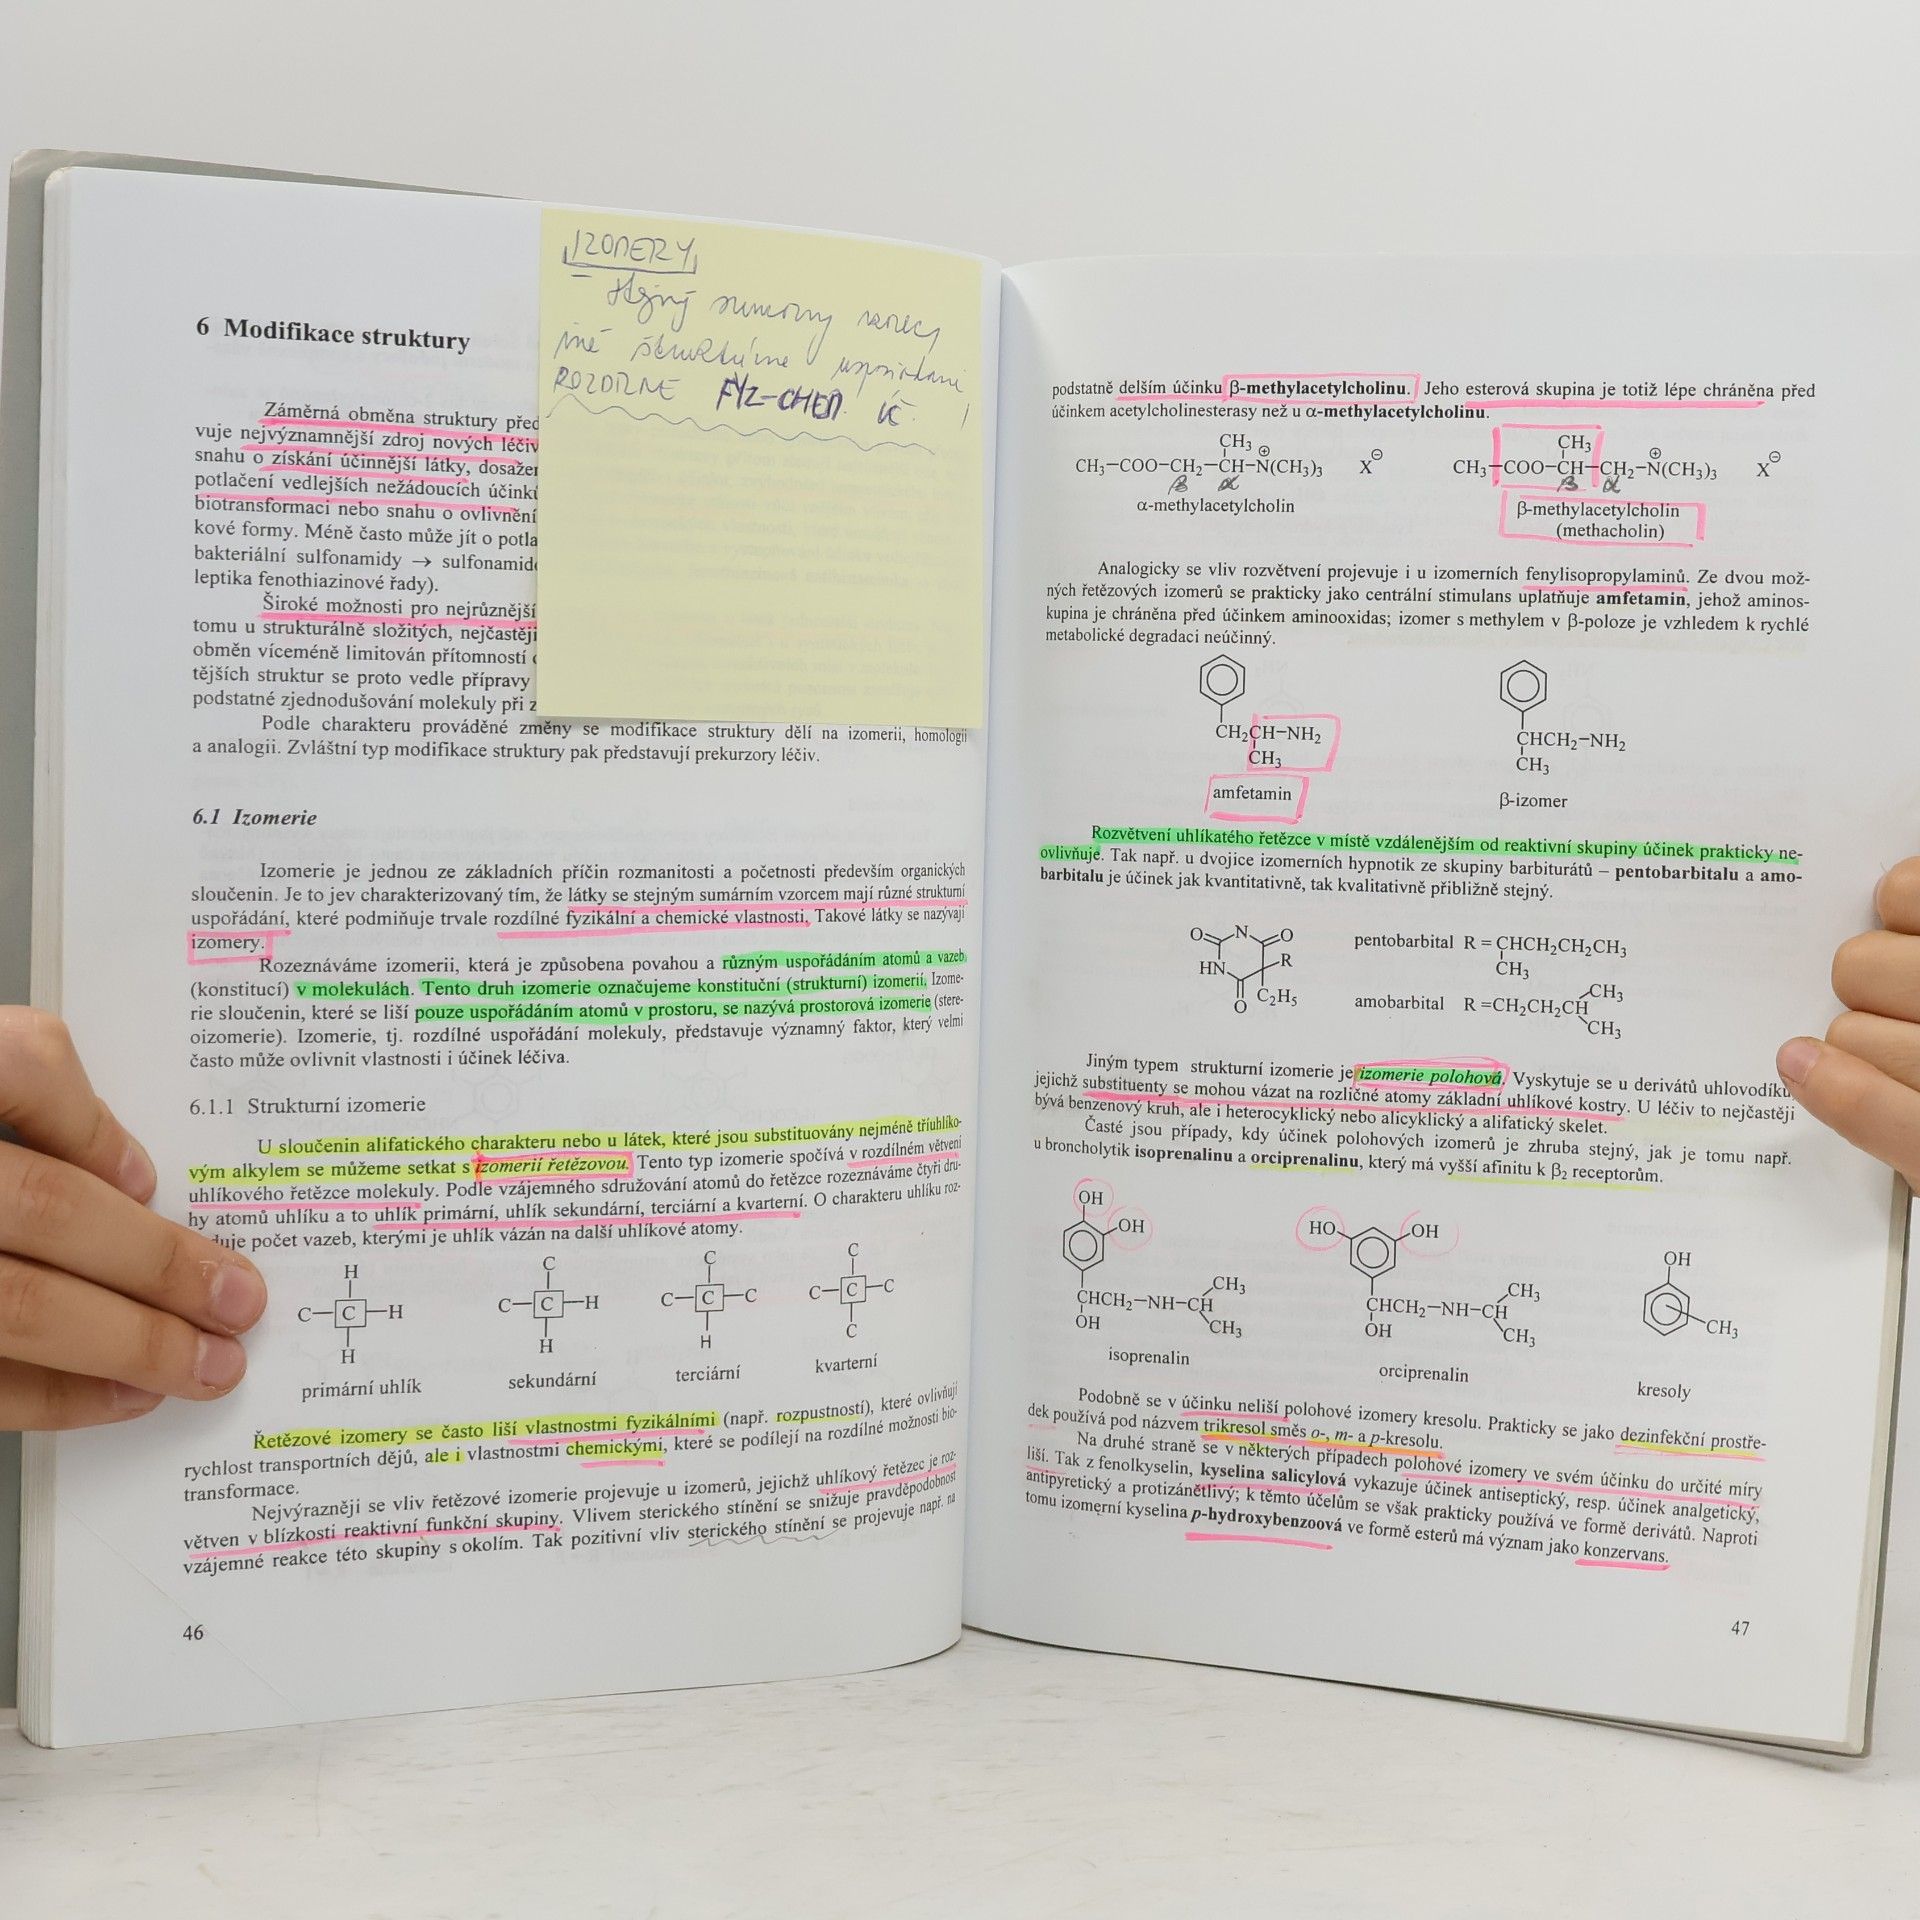 IZOMERY
– stejný sumární vzorec,
jiné
ROZDÍLNÉ FYZ-CHEM.
6 Modifikace struktury
Záměrná obměna struktury
vuje nejvýznamnější zdroj nových léčiv
snahu o získání účinnější látky,
potlačení vedlejších nežádoucích
biotransformaci nebo snahu o ovlivnění
kové formy. Méně často může jít o
bakteriální sulfonamidy →
leptika fenothiazinové řady).
Široké možnosti pro nejrůznější
tomu u strukturálně složitých,
obměn víceméně limitován přítomností
tějších struktur se proto vedle přípravy
podstatné zjednodušování molekuly při
Podle charakteru prováděné změny se modifikace struktury dělí na izomerii, homologii
a analogii. Zvláštní typ modifikace struktury pak představují prekurzory léčiv.
6.1 Izomerie
Izomerie je jednou ze základních příčin rozmanitosti a početnosti především organických
sloučenin. Je to jev charakterizovaný tím, že látky se stejným sumárním vzorcem mají různé strukturní
uspořádání, které podmiňuje trvale rozdílné fyzikální a chemické vlastnosti. Takové látky se nazývají
izomery.
Rozeznáváme izomerii, která je způsobena povahou a různým uspořádáním atomů a vazeb
(konstitucí) v molekulách. Tento druh izomerie označujeme konstituční (strukturní) izomerií. Izome-
rie sloučenin, které se liší pouze uspořádáním atomů v prostoru, se nazývá prostorová izomerie (stere-
oizomerie). Izomerie, tj. rozdílné uspořádání molekuly, představuje významný faktor, který velmi
často může ovlivnit vlastnosti i účinek léčiva.
6.1.1 Strukturní izomerie
U sloučenin alifatického charakteru nebo u látek, které jsou substituovány nejméně tříuhlíko-
vým alkylem se můžeme setkat s izomerií řetězovou. Tento typ izomerie spočívá v rozdílném větvení
uhlíkového řetězce molekuly. Podle vzájemného sdružování atomů do řetězce rozeznáváme čtyři dru-
hy atomů uhlíku a to uhlík primární, uhlík sekundární, terciární a kvarterní. O charakteru uhlíku roz-
duje počet vazeb, kterými je uhlík vázán na další uhlíkové atomy.
H C C C
C–C–H C–C–H C–C–C C–C–C
H H H C
primární uhlík sekundární terciární kvarterní
Řetězové izomery se často liší vlastnostmi fyzikálními (např. rozpustností), které ovlivňují
rychlost transportních dějů, ale i vlastnostmi chemickými, které se podílejí na rozdílné možnosti bio-
transformace.
Nejvýrazněji se vliv řetězové izomerie projevuje u izomerů, jejichž uhlíkový řetězec je roz-
větven v blízkosti reaktivní funkční skupiny. Vlivem sterického stínění se snižuje pravděpodobnost
vzájemné reakce této skupiny s okolím. Tak pozitivní vliv sterického stínění se projevuje např. na
46
podstatně delším účinku β-methylacetylcholinu. Jeho esterová skupina je totiž lépe chráněna před
účinkem acetylcholinesterasy než u α-methylacetylcholinu.
CH₃ CH₃
CH₃–COO–CH₂–CH–N⊕(CH₃)₃ X⊖ CH₃–COO–CH–CH₂–N⊕(CH₃)₃ X⊖
β α β α
α-methylacetylcholin β-methylacetylcholin
(methacholin)
Analogicky se vliv rozvětvení projevuje i u izomerních fenylisopropylaminů. Ze dvou mož-
ných řetězových izomerů se prakticky jako centrální stimulans uplatňuje amfetamin, jehož aminos-
kupina je chráněna před účinkem aminooxidas; izomer s methylem v β-poloze je vzhledem k rychlé
metabolické degradaci neúčinný.
CH₂CH–NH₂ CHCH₂–NH₂
CH₃ CH₃
amfetamin β-izomer
Rozvětvení uhlíkatého řetězce v místě vzdálenějším od reaktivní skupiny účinek prakticky ne-
ovlivňuje. Tak např. u dvojice izomerních hypnotik ze skupiny barbiturátů – pentobarbitalu a amo-
barbitalu je účinek jak kvantitativně, tak kvalitativně přibližně stejný.
O N O
HN R
O C₂H₅
pentobarbital R = CHCH₂CH₂CH₃
CH₃
amobarbital R =CH₂CH₂CH
CH₃
CH₃
Jiným typem strukturní izomerie je izomerie polohová. Vyskytuje se u derivátů uhlovodíků,
jejichž substituenty se mohou vázat na rozličné atomy základní uhlíkové kostry. U léčiv to nejčastěji
bývá benzenový kruh, ale i heterocyklický nebo alicyklický a alifatický skelet.
Časté jsou případy, kdy účinek polohových izomerů je zhruba stejný, jak je tomu např.
u broncholytik isoprenalinu a orciprenalinu, který má vyšší afinitu k β₂ receptorům.
OH
OH HO OH OH
CH₃ CH₃ CH₃
CHCH₂–NH–CH CHCH₂–NH–CH
OH CH₃ OH CH₃
isoprenalin orciprenalin kresoly
Podobně se v účinku neliší polohové izomery kresolu. Prakticky se jako dezinfekční prostře-
dek používá pod názvem trikresol směs o-, m- a p-kresolu.
Na druhé straně se v některých případech polohové izomery ve svém účinku do určité míry
liší. Tak z fenolkyselin, kyselina salicylová vykazuje účinek antiseptický, resp. účinek analgetický,
antipyretický a protizánětlivý; k těmto účelům se však prakticky používá ve formě derivátů. Naproti
tomu izomerní kyselina p-hydroxybenzoová ve formě esterů má význam jako konzervans.
47